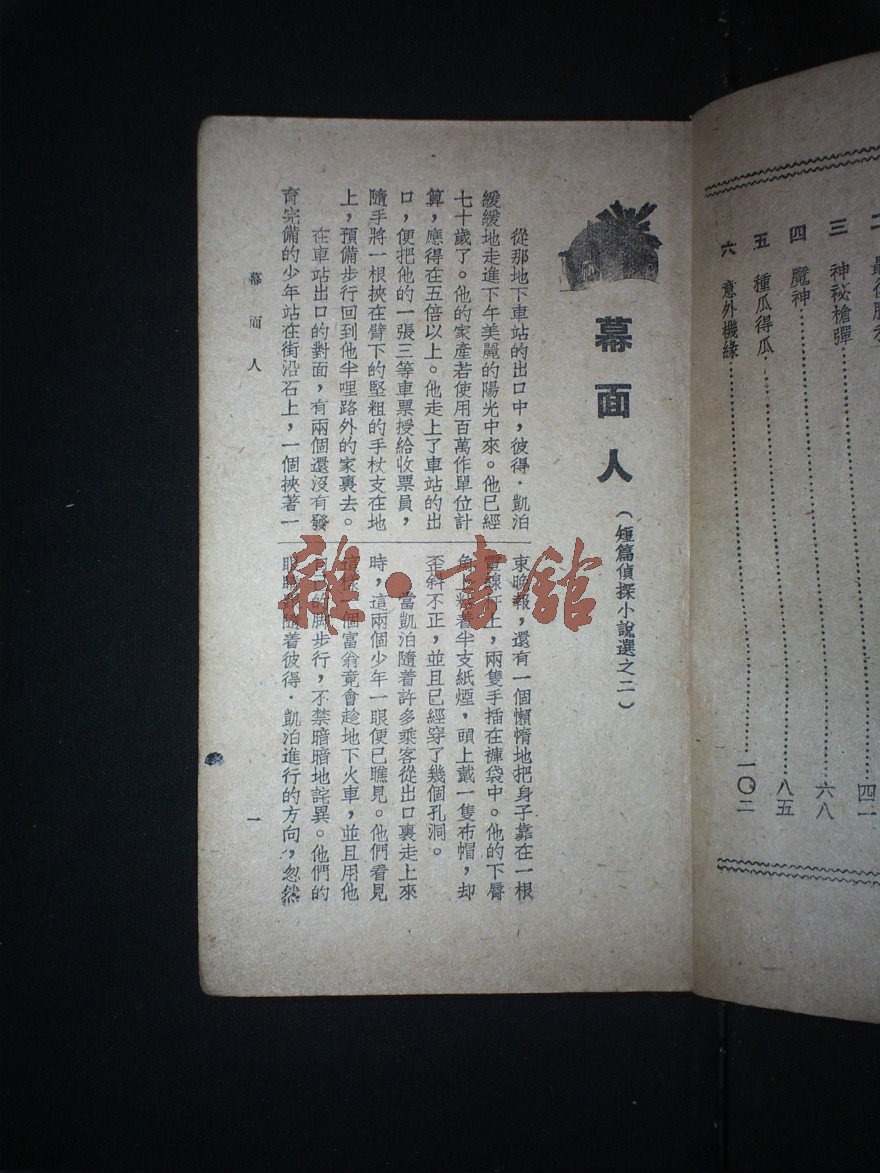 三 神祕槍彈 六八
四 魔神
五 種瓜得瓜 八五
六 意外機緣 一〇二
幕面人
(短篇偵探小說選之二)
從那地下車站的出口中,彼得·凱泊
緩緩地走進下午美麗的陽光中來。他已經
七十歲了。他的家產若使用百萬作單位計
算,應得在五倍以上。他走上了車站的出
口,便把他的一張三等車票授給收票員,
隨手將一根挾在臂下的堅粗的手杖支在地
上,預備步行回到他半哩路外的家裏去。
在車站出口的對面,有兩個還沒有發
育完備的少年站在街沿石上,一個挾著一
束晚報,還有一個懶惰地把身子靠在一根
電線杆上,兩隻手插在褲袋中。他的下唇
角上粘着半支紙煙,頭上戴一隻布帽,却
歪斜不正,並且已經穿了幾個孔洞。
當凱泊隨着許多乘客從出口裏走上來
時,這兩個少年一眼便已瞧見。他們看見
這樣一個富翁竟會趁地下火車,並且用他
的脚步行,不禁暗暗地詫異。他們的
隨着彼得·凱泊進行的方向,忽然
幕面人
一
雜·書館